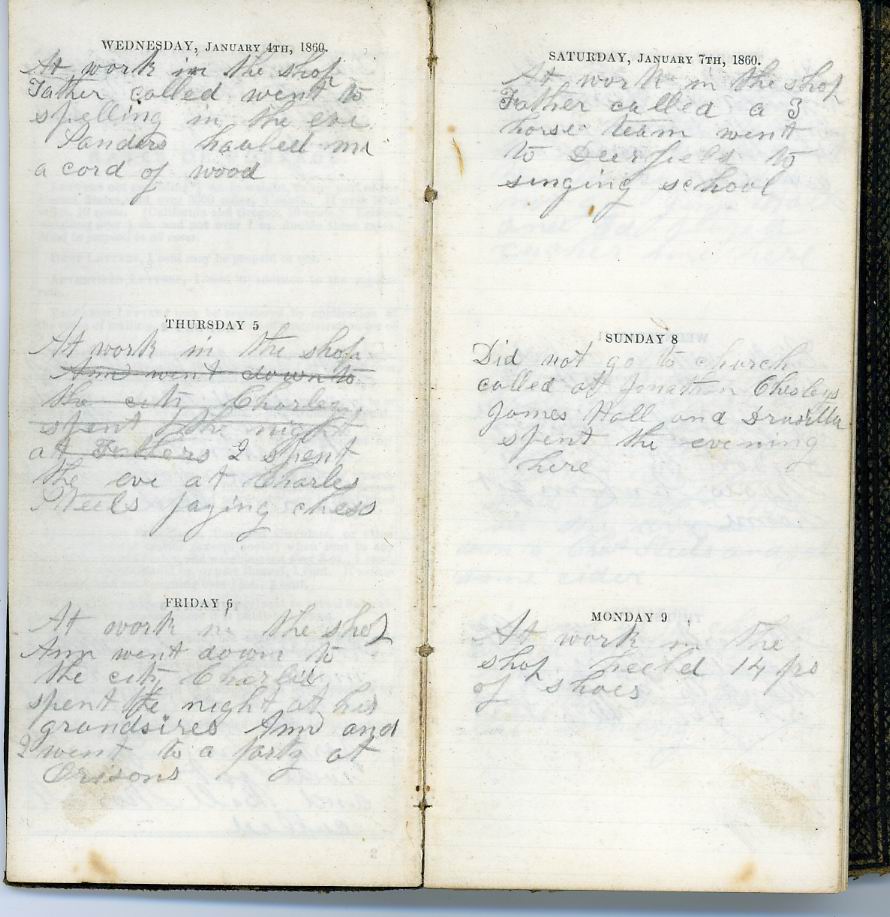 WEDNESDAY, JANUARY 4TH, 1860.
At work in the shop
Father called went to
spelling in the eve
Sanders hauled me
a cord of wood
THURSDAY 5
At work in the shop
Ann went down to
the city Charley
spent the night
at Fathers I spent
the eve at Charles
Neels paying chess
FRIDAY 6
At work in the shop
Ann went down to
the city Charlie
spent the night at his
grandsires Ann and
I went to a party at
Orisons
2
SATURDAY, JANUARY 7TH, 1860.
At work in the shop
Father called a 3
horse team went
to Deerfield to
singing school
SUNDAY 8
Did not go to church
called at Jonathan Chesleys
James Hall and Drusilla
spent the evening
here
MONDAY 9
At work in the
shop heeled 14 prs
of shoes